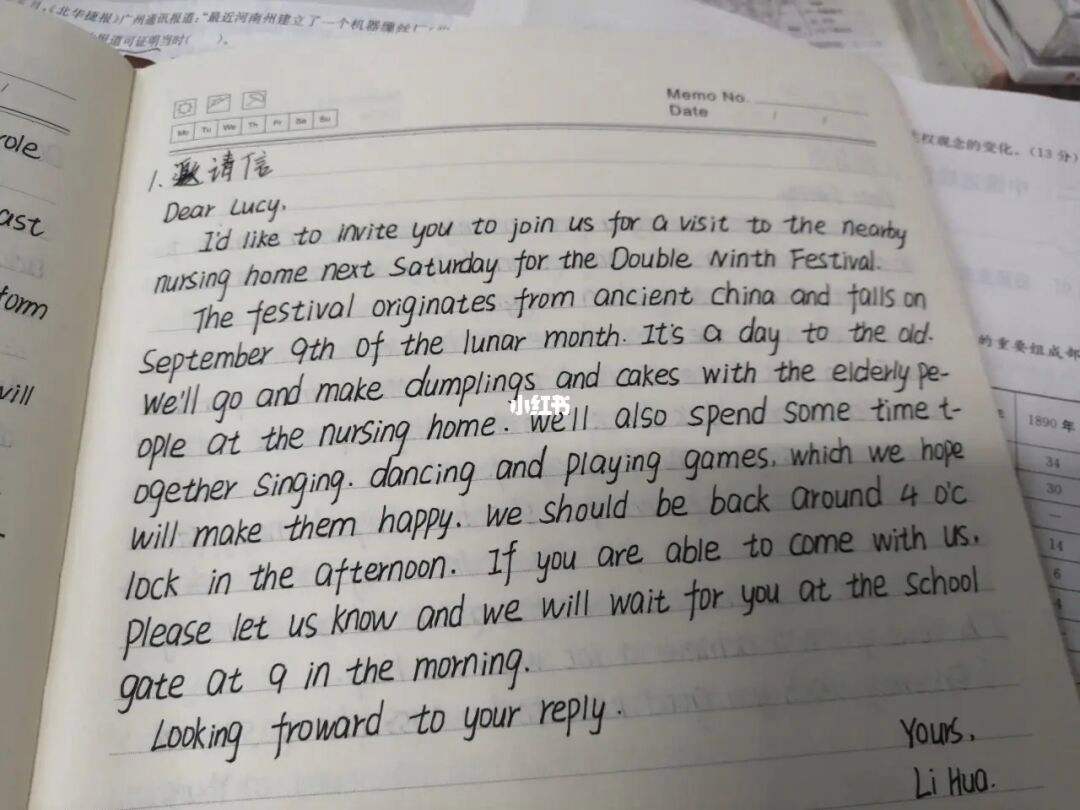 《北华捷报》广州通讯报道:"最近河南州建立了一个机器缫丝厂
报道可证明当时( )。
Memo No.
Date / /
Mo Tu We Th Fr Sa Su
1. 邀请信
Dear Lucy,
I'd like to invite you to join us for a visit to the nearby
nursing home next Saturday for the Double Ninth Festival.
The festival originates from ancient China and falls on
September 9th of the lunar month. It's a day to the old.
We'll go and make dumplings and cakes with the elderly pe-
ople at the nursing home. We'll also spend some time t-
ogether singing, dancing and playing games, which we hope
will make them happy. We should be back around 4 o'c
lock in the afternoon. If you are able to come with us,
Please let us know and we will wait for you at the school
gate at 9 in the morning.
Looking froward to your reply.
Yours,
Li Hua.
小红书
role
ast
form
will
权观念的变化。(13分)
的重要组成部
1890年
34
30
14
6